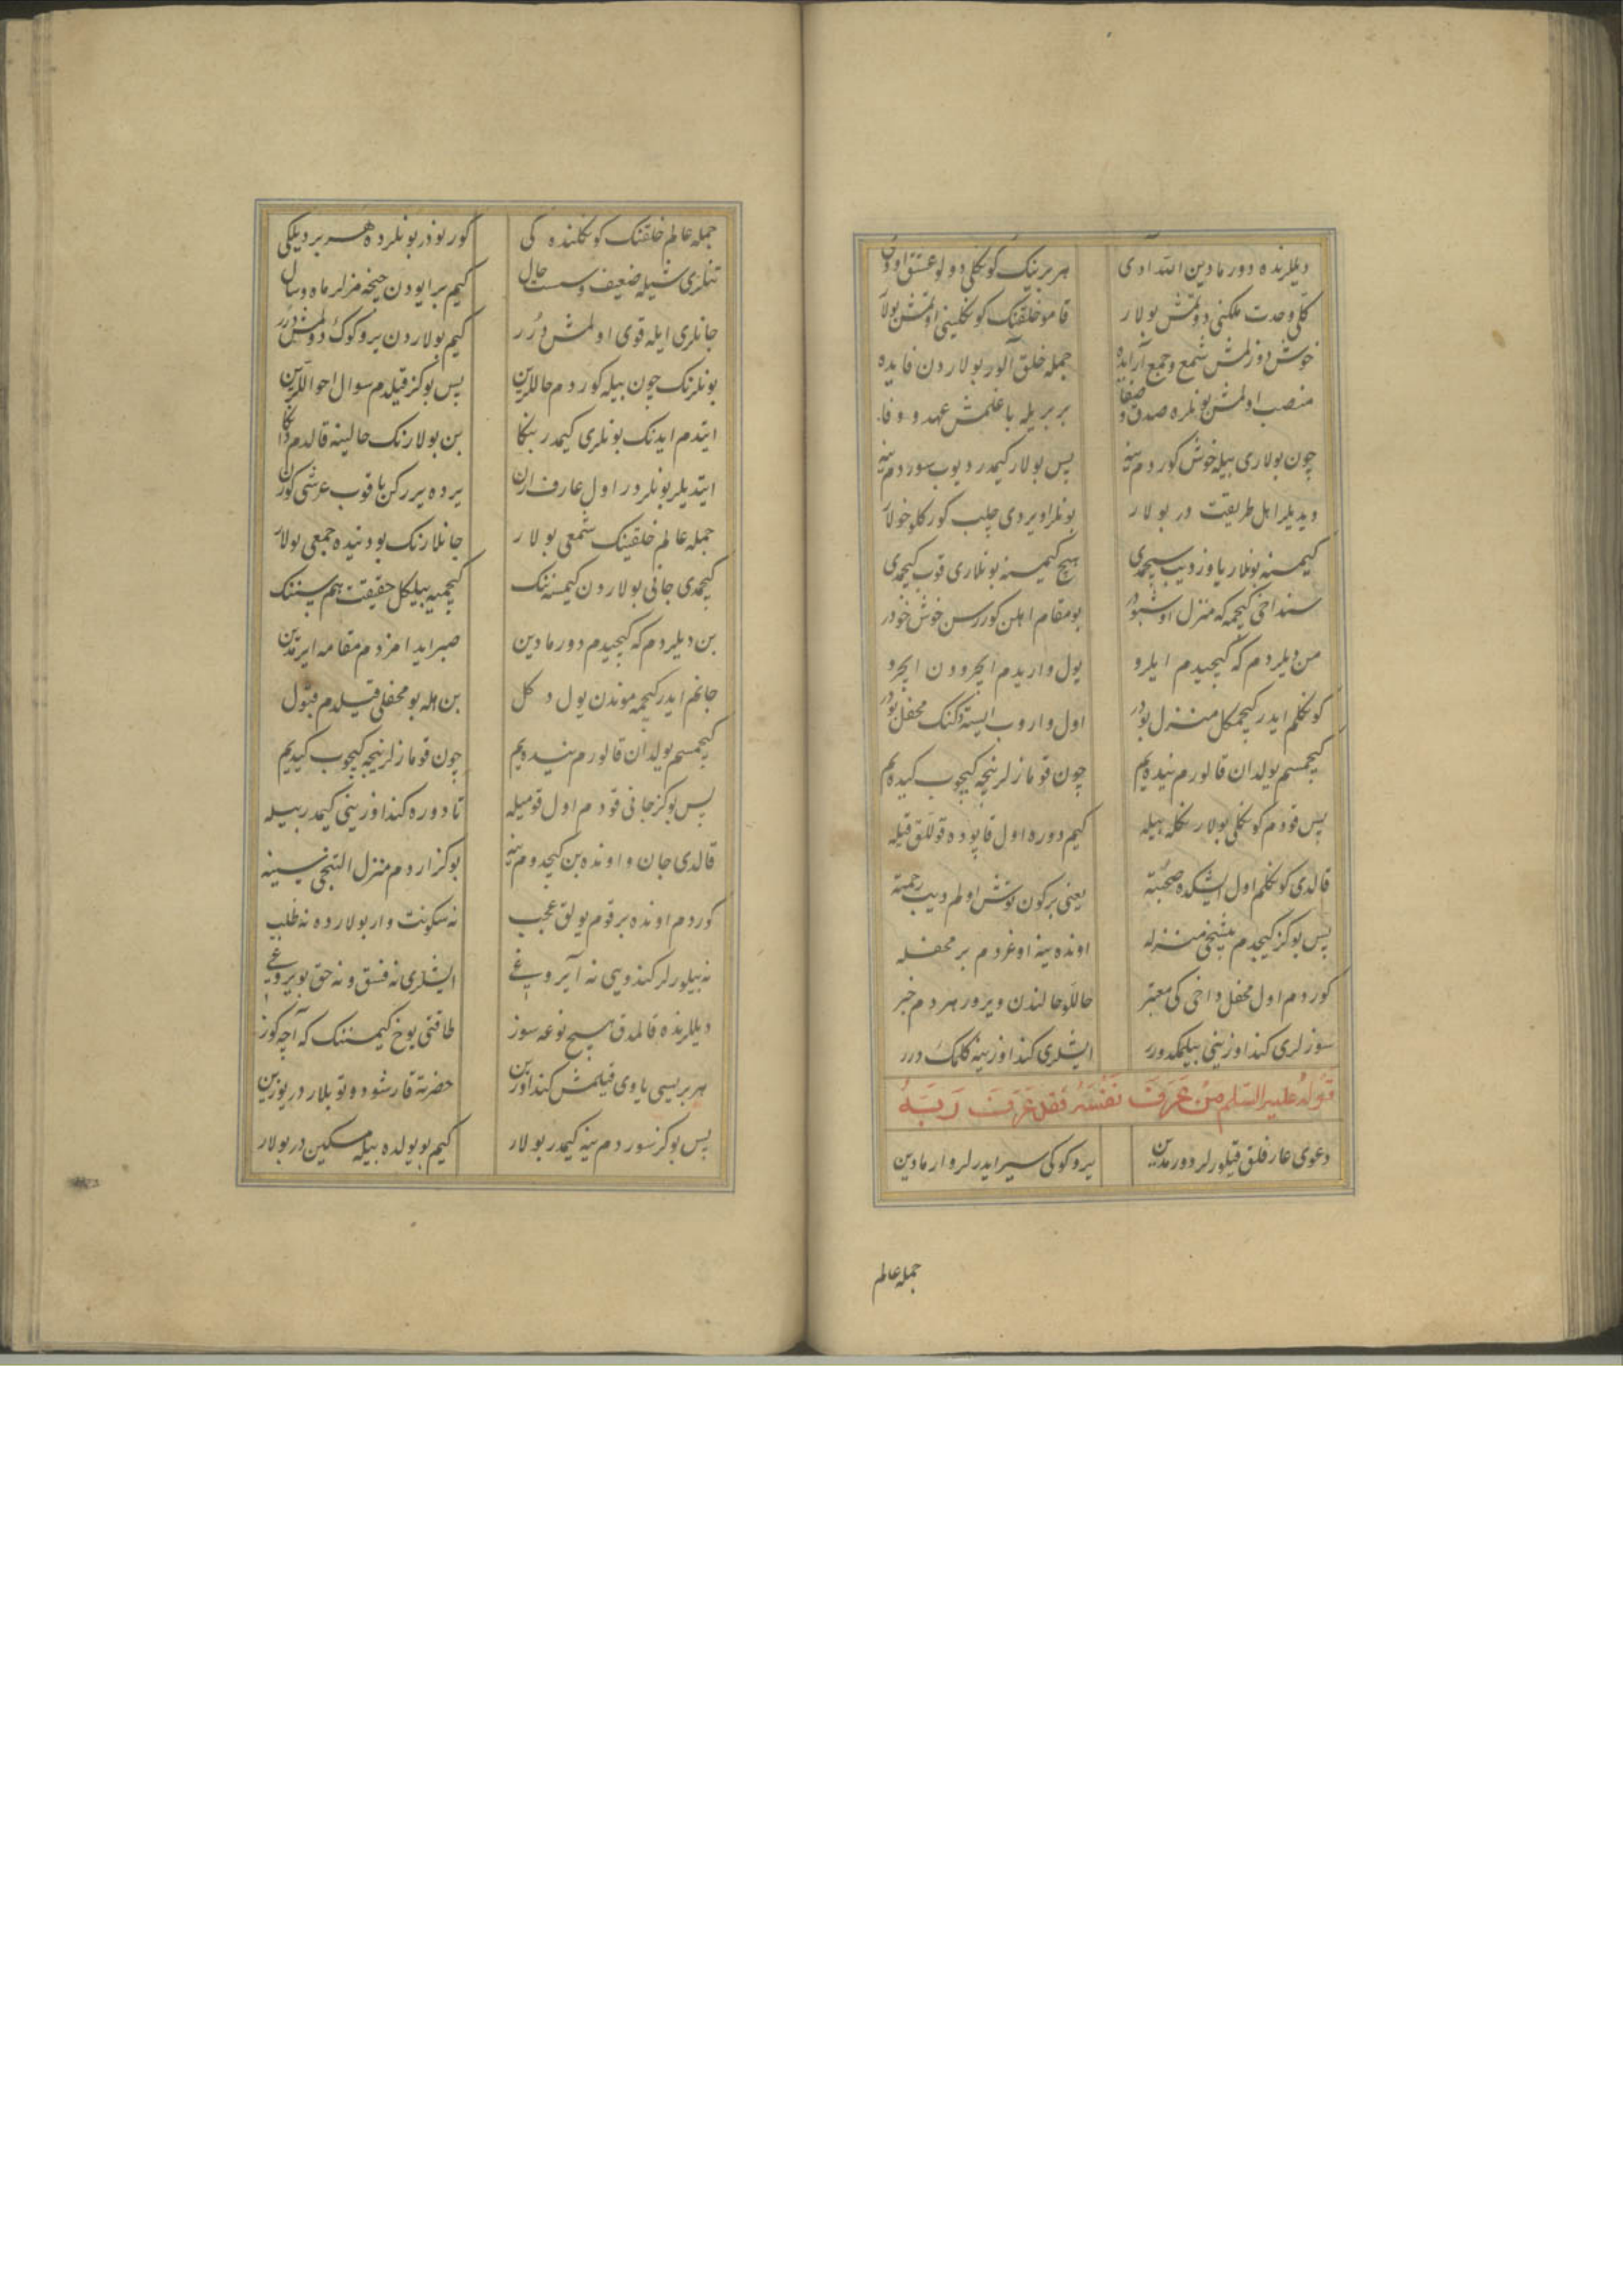 دیللرنده دورمادین الله آدی هر برینک کوکلی دولو عشق اودی
کلی وحدت ملکنی دوتمش بولار قامو خلقنک کوکلینی اوتمش بولار
خوش دوزلمش شمع و جمع آرایده جمله خلق آلور بولاردن فایده
منصب اولمش بونلره صدق و صفا بر بریله باغلمش عهد و وفا
چون بولاری بیله خوش کوردم ینه پس بولار کیمدر دیوب سوردم ینه
دیدیلر اهل طریقت در بولار بونلرا ویردی چلب کورکلو خولار
کیمسنه بونلار یاوز دیب سچمدی هیچ کیمسنه بونلاری قوب کیچمدی
سنداخی کیچمه که منزل اوشبودر بو مقام اهلن کوررسن خوش خودر
من دیلردم که کیچیدم ایلرو یول واریدم ایچرودن ایچرو
کوکلم ایدر کیچمکل منزل بودر اول واروب ایستدکنک محفل بودر
کیچمسم یولدان قالورم نیده‌یم چون قومازلر نیجه کیچوب کیده‌یم
پس قودم کوکلی بولار نکله بیله کیم دوره اول قاپوده قوللق قیله
قالدی کوکلم اول ایشکده صحبته یعنی بر کون توش اولم دیب رحمته
پس بو کز کیچدم بشنجی منزله اونده ینه اوغردم بر محفله
کوردم اول محفل داخی کی معتبر حاللو حالندن ویرور هر دم خبر
سوزلری کنداوزینی بیلمکدور ایشلری کنداوزینه کلمک درر
قوله علیه السلام من عرف نفسه فقد عرف ربه
دعوی عارفلق قیلورلر دورمدین یر و کوکی سیر ایدرلر وارمادین
جمله عالم
جمله عالم خلقنک کوکلنده کی کورنودر بونلرده هر بر دیلکی
تنلری شیله ضعیف و سست حال کیم بر ایودن چیخمزلر ماه و سال
جانلری ایله قوی اولمش درر کیم بولاردن یر و کوک دولمش درر
بونلرنک چون بیله کوردم حاللرین پس بو کز قیلدم سوال احواللرین
ایتدم ایدنک بونلری کیمدر بنکا بن بولارنک حالینه قالدم دنکا
ایتدیلر بونلردر اول عارف ارن یرده یررکن باقوب عرشی کورن
جمله عالم خلقینک شمعی بولار جانلارنک بودنیده جمعی بولار
کیچمدی جانی بولاردن کیمسنه‌ننک کیچمیه بیلکل حقیقت هم سننک
بن دیلردم که کیچیدم دورمادین صبر ایدامزدم مقامه ایرمدین
جانم ایدر کیچمه موندن یول دکل بن هله بو محفلی قیلدم قبول
کیچمسم یولدان قالورم نیده‌یم چون قومازلر نیجه کیچوب کیدیم
پس بو کز جانی قودم اول قومیله تا دوره کنداوزینی کیمدر بیله
قالدی جان و اونده بن کیچدوم ینه بو کز اردم منزل التنجی سینه
کوردم اونده بر قوم یولق عجب نه سکونت وار بولارده نه طلب
نه بیلورلر کندویی نه آیروغی ایشلری نه فسق و نه حق بویروغی
دیللرنده قالمدق هیچ نوعه سوز طاقتی یوخ کیمسننک که آچه کوز
هر بریسی یاوی قیلمش کنداوزین حضرته قارشو دوتوبلار در یوزین
پس بو کز سوردم ینه کیمدر بولار کیم بو یولده بیله مسکین در بولار